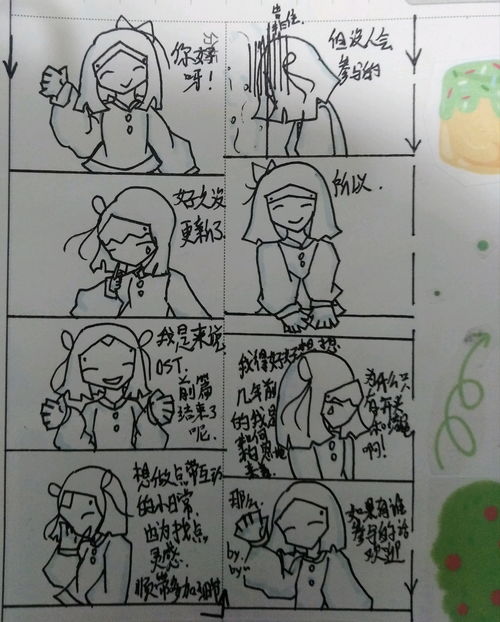 你好
呀！
好久没
更新了
我是来说
OST.
前篇
结束了
呢.
想做点带互动
的小日常,
因为找点
灵感.
顺带多加
靠住.
但没人会
参与的
所以.
我得好好想想
几年前
的我是
如何
为什么只
有开头
啊!
那么.
by.
by~
如果有谁
参与的话
欢迎